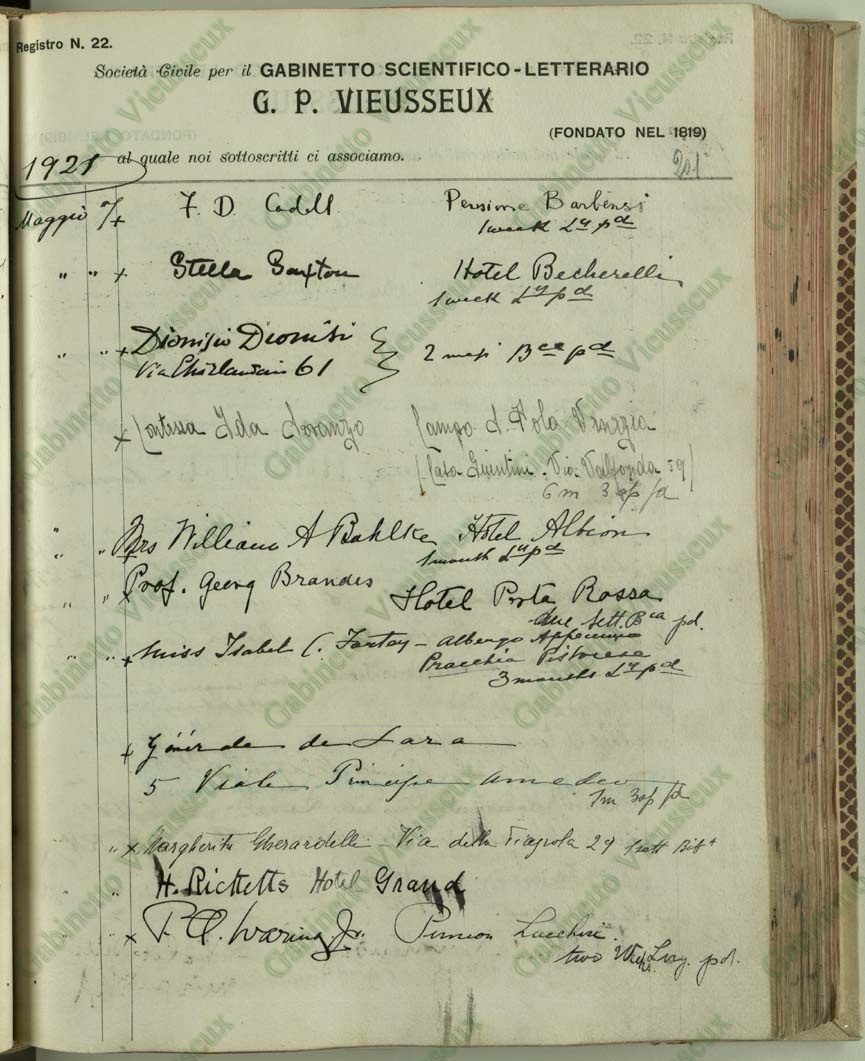 Registro N. 22.
Società Civile per il GABINETTO SCIENTIFICO-LETTERARIO
G. P. VIEUSSEUX
(FONDATO NEL 1819)
1921 al quale noi sottoscritti ci associamo.
201
Maggio 7 x F. D. Cadell Pensione Barbensi
1 week Ly pd
" " x Stella Saxton Hotel Becherelli
1 week Ly pd
" " x Dionisio Dionisi
Via Ghirlandaio 61 2 mesi pd
x Contessa Ida Soranzo Campo S. Polo Venezia
(Casa Quentini. Via Valfonda 59)
6 m 3 op pd
" " Mrs William A Bahlke Hotel Albion
1 month Ly pd
" " x Prof. Georg Brandes Hotel Porta Rossa
due sett. Bca pd.
" " x Miss Isabel C. - albergo Appennino
Pracchia Pistoiese
3 months Ly pd
x de Lara
5 Viale Principe Amedeo
1m 3op pd
" x Margherita Gherardelli - Via della 29
" H. Ricketts Hotel Grand
x P. A. Waring Jr. Pension Lucchesi.
two Wks. Ly. pd.
Gabinetto Vieusseux